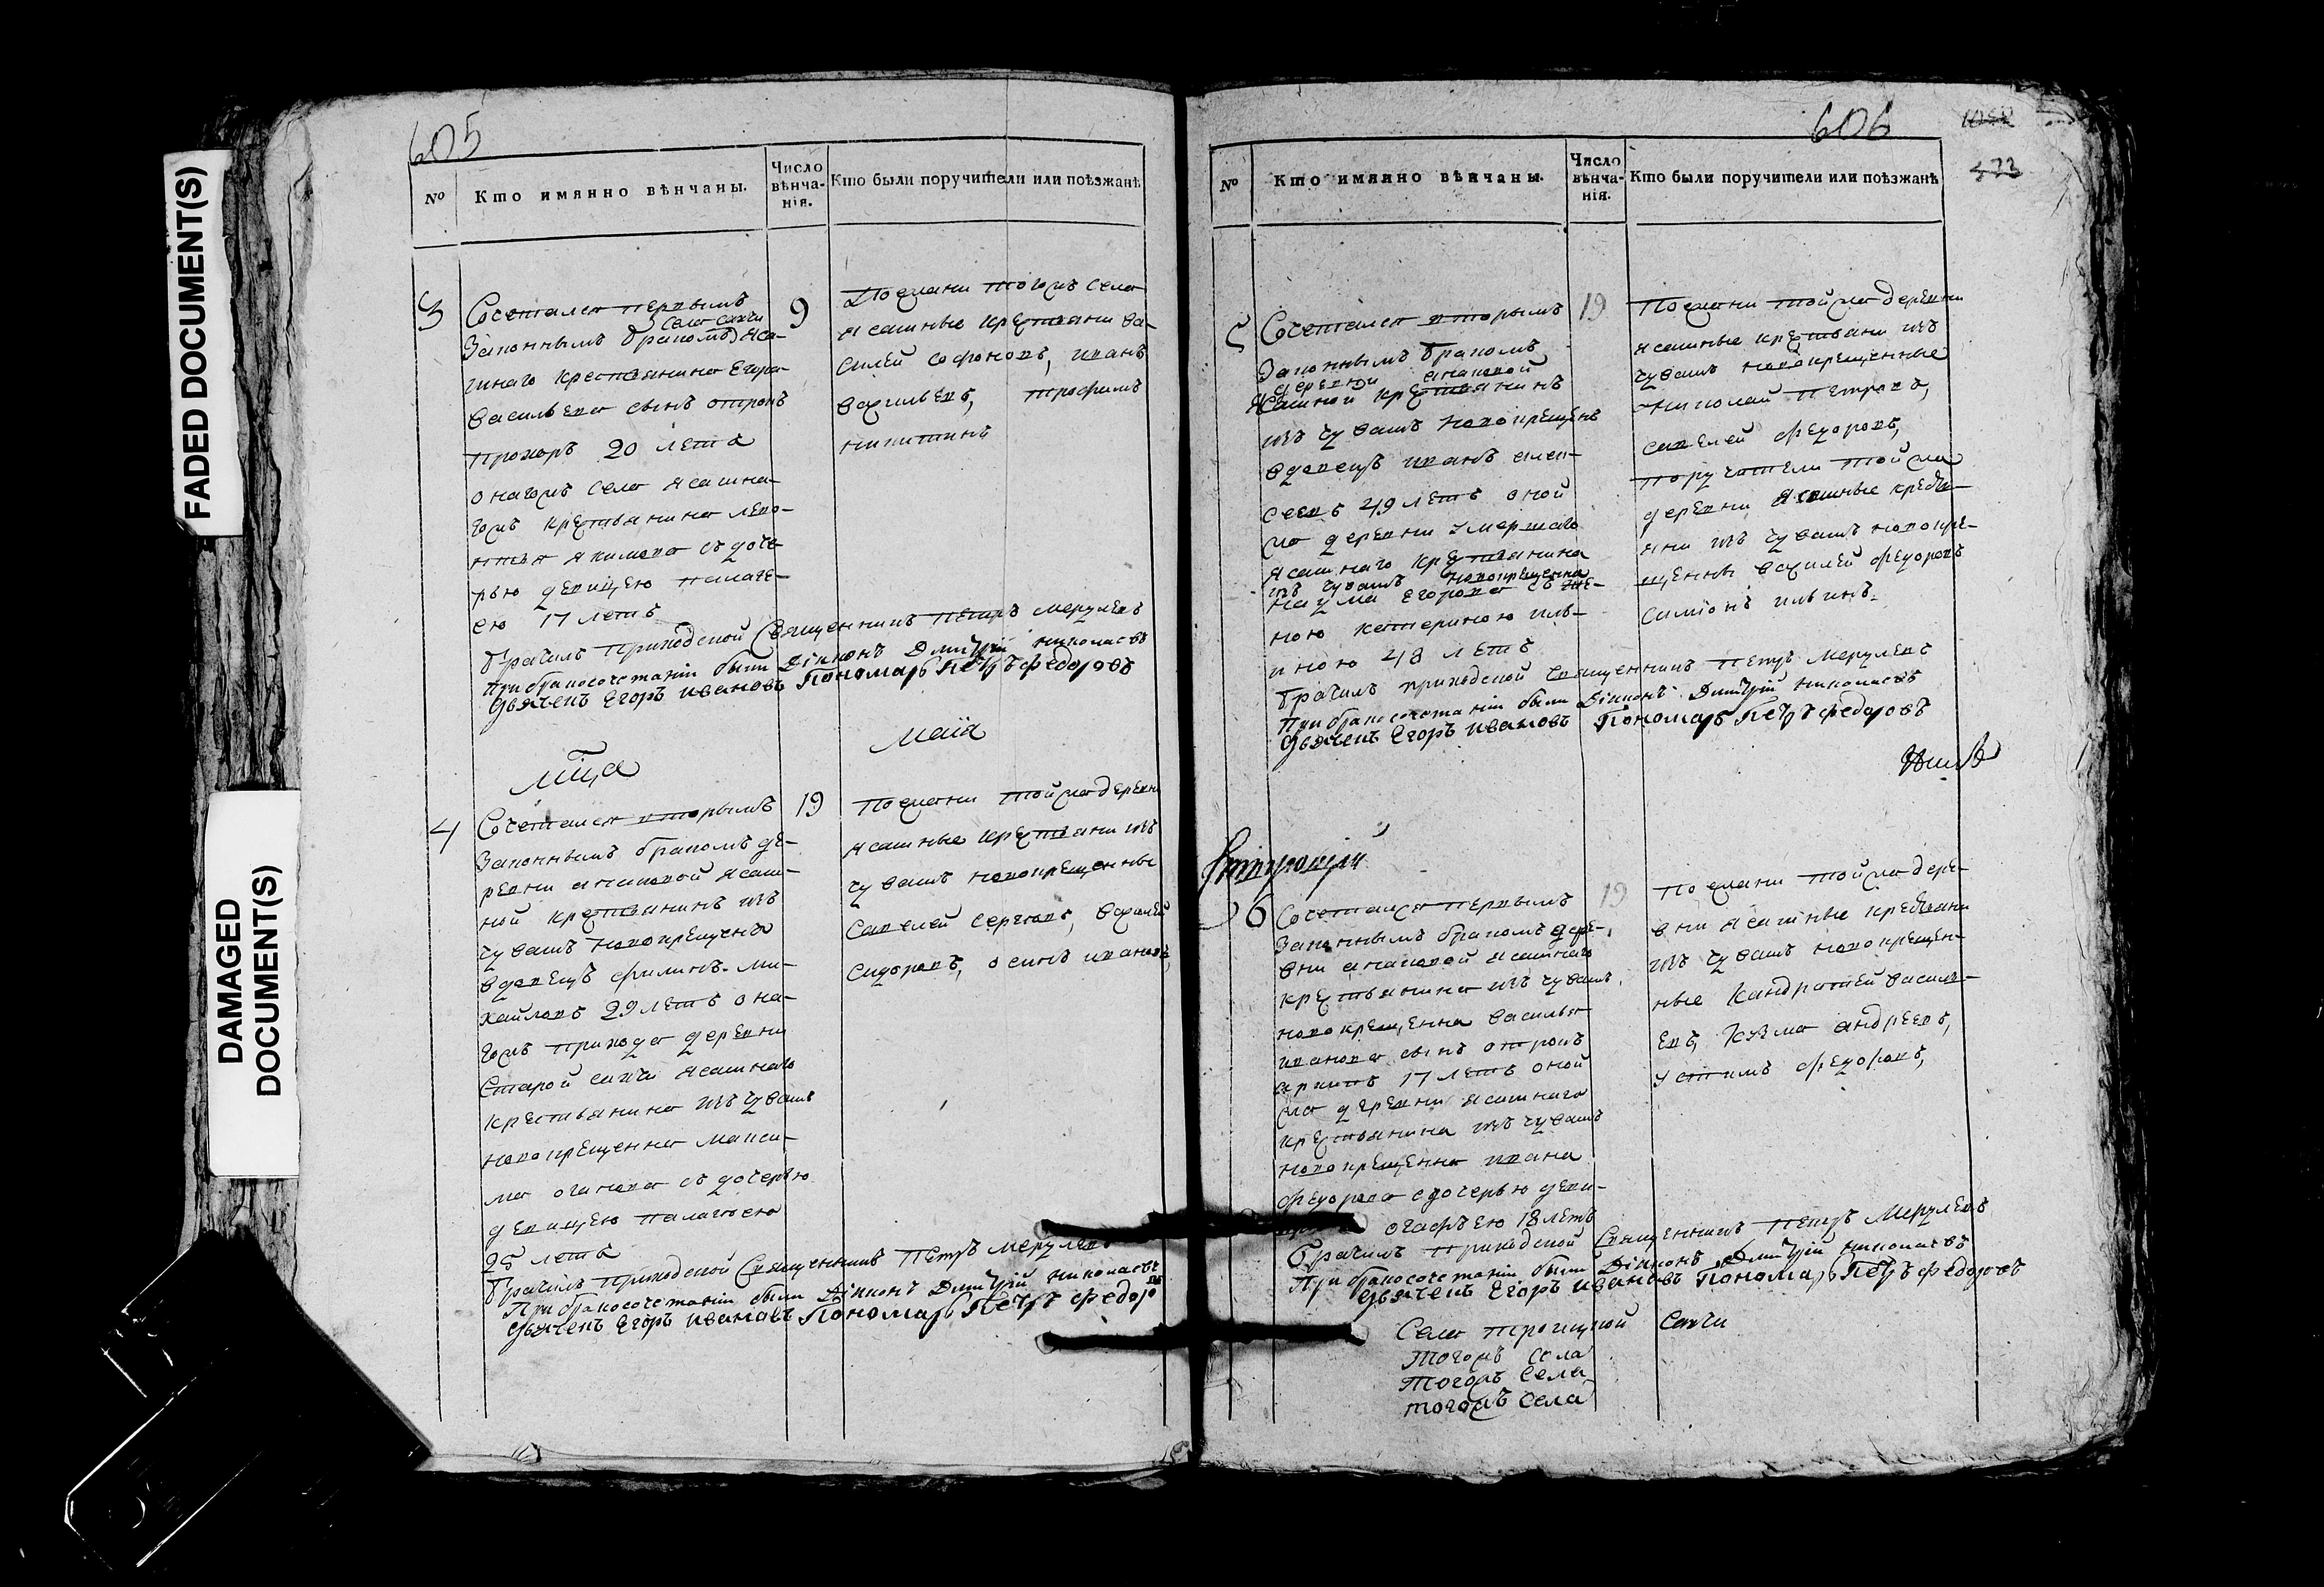 FADED DOCUMENT(S)
DAMAGED
DOCUMENT(S)
605
№
Кто имянно вѣнчаны.
Число
вѣнча-
нія.
Кто были поручители или поѣзжанѣ
3
Сочетался первымъ
села сахчи
Законнымъ бракомъ Яса-
шнаго крестьянина Егора
Васильева сынъ отрокъ
Прохоръ 20 летъ
онагожъ села ясашна-
гожъ крестьянина Лево-
нтья Якимова съ доче-
рью девицею Палаге-
ею 17 летъ
9
Поежани тогожъ села
ясашные крестьяни Ва-
силей Софоновъ, Иванъ
Васильевъ, Трофимъ
Никитинъ
Брачилъ приходской Священникъ Петръ Меркулевъ
При бракосочетаніи были Діяконъ Димитрій Николаевъ
Дьячекъ Егоръ Ивановъ Пономарь Петръ Федоровъ
Мца
Маіа
4
Сочетался вторымъ
Законнымъ бракомъ де-
ревни Анаковой ясаш-
ной крестьянинъ изъ
чувашъ новокрещенъ
вдовецъ Филипъ Ми-
хайловъ 29 летъ она-
гожъ прихода деревни
Старой сахчи ясашнаго
крестьянина изъ чувашъ
новокрещенна Макси-
ма съ дочерью
девицею Палагеею
25 летъ
19
Поежани тойжа деревни
ясашные крестьяни изъ
чувашъ новокрещенные
Савелей Сергеевъ, Василей
Сидоровъ, Осипъ Ивановъ,
Брачилъ приходской Священникъ Петръ Меркулевъ
При бракосочетаніи были Діяконъ Димитрій Николаевъ
Дьячекъ Егоръ Ивановъ Пономарь Петръ Федоровъ
606
473
№
Кто имянно вѣнчаны.
Число
вѣнча-
нія.
Кто были поручители или поѣзжанѣ
5
Сочетался вторымъ
Законнымъ бракомъ
деревни Анаковой
Ясашной крестьянинъ
изъ чувашъ новокрещенъ
вдовецъ Иванъ Алек-
сеевъ 49 летъ оной
жа деревни умершаго
ясашнаго крестьянина
изъ чувашъ новокрещенна
Наума Егорова съ же-
ною Катериною Иль-
иною 48 летъ
19
Поежани тойжа деревни
ясашные крестьяни изъ
чувашъ новокрещенные
Николай Петровъ,
Савелей Федоровъ,
поручатели тойжа
деревни ясашные кресть-
яни изъ чувашъ новокре-
щенны Василей Федоровъ
Симіонъ Ильинъ.
Брачилъ приходской Священникъ Петръ Меркулевъ
При бракосочетаніи были Діяконъ Димитрій Николаевъ
Дьячекъ Егоръ Ивановъ Пономарь Петръ Федоровъ
6
Сочетался первымъ
Законнымъ бракомъ дере-
вни Анаковой ясашнаго
крестьянина изъ чувашъ
новокрещенна Василья
Иванова сынъ отрокъ
17 летъ оной
жа деревни ясашнаго
крестьянина изъ чувашъ
новокрещенна Ивана
Федорова съ дочерью деви-
Огафѣею 18 летъ
19
Поежани тойжа дере-
вни ясашные крестьяни
изъ чувашъ новокрещен-
ные Кандратей Василь-
евъ, Кузма Андреевъ,
Устимъ Федоровъ,
Брачилъ приходской Священникъ Петръ Меркулевъ
При бракосочетаніи были Діяконъ Димитрій Николаевъ
Дьячекъ Егоръ Ивановъ Пономарь Петръ Федоровъ
Села Троицкой Сахчи
Тогожъ села
Тогожъ села
тогожъ села